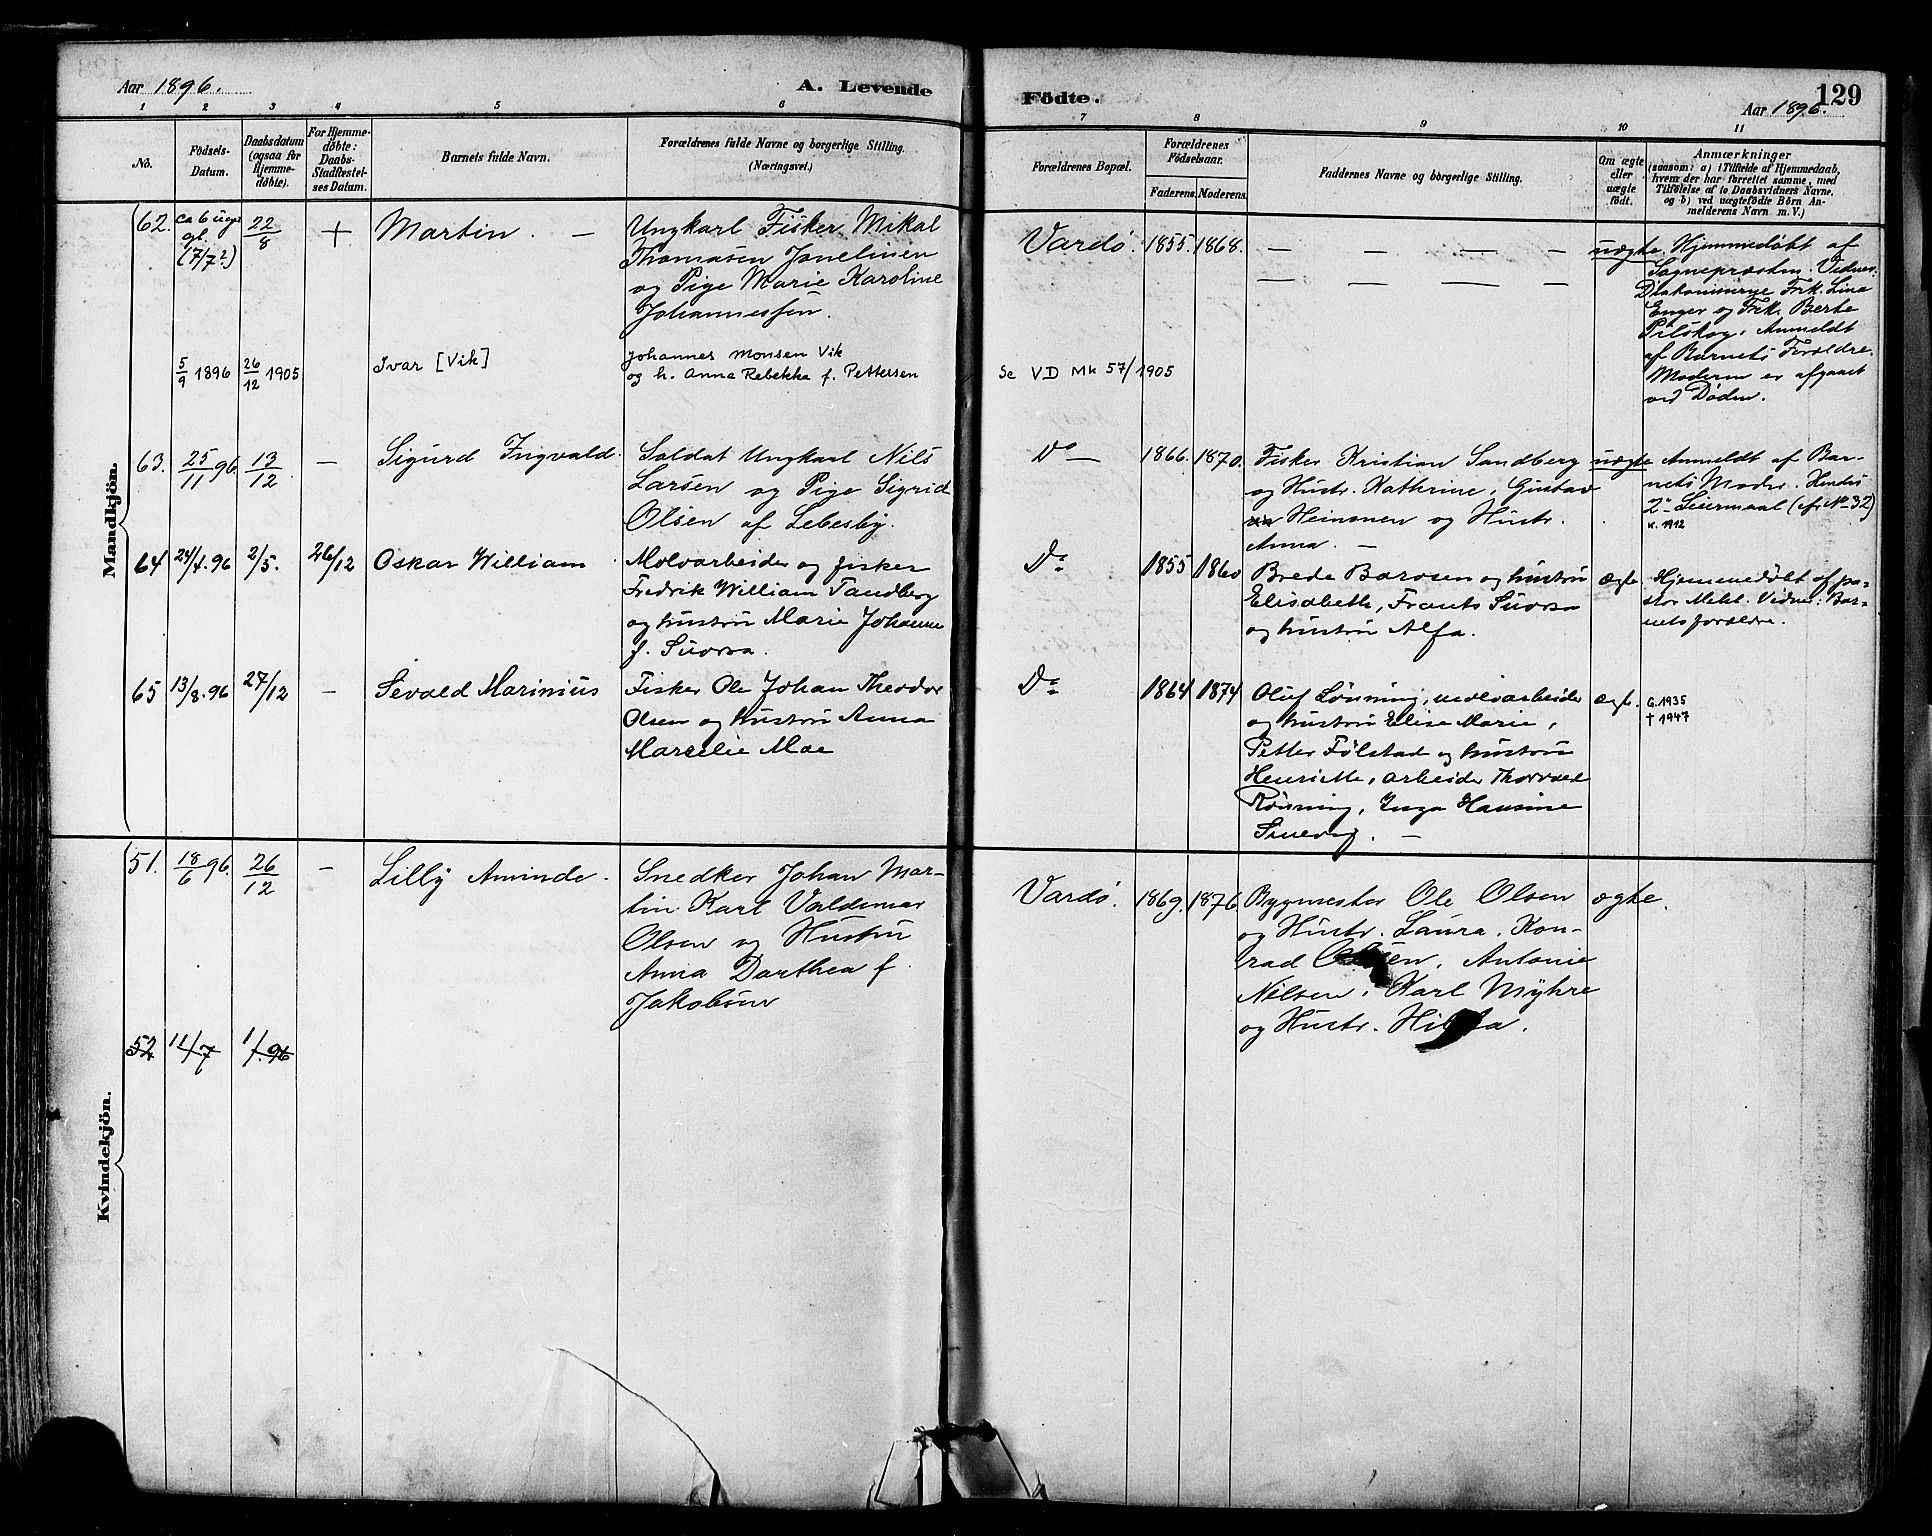 Aar 1896.
A. Levende
Födte.
129
Aar 1896.
1 2 3 4 5 6 7 8 9 10 11
No.
Födsels-
Datum.
Daabsdatum
(ogsaa for
Hjemme-
døbte).
For Hjemme-
døbte:
Daabs-
Stadfæstel-
ses Datum.
Barnets fulde Navn.
Forældrenes fulde Navne og borgerlige Stilling.
(Næringsvei.)
Forældrenes Bopæl.
Forældrenes
Födselsaar.
Faderens. Moderens.
Faddernes Navne og borgerlige Stilling.
Om ægte
eller
uægte
födt.
Anmærkninger
(saasom: a) i Tilfælde af Hjemmedaab,
hvem der har forrettet samme, med
Tilføielse af to Daabsvidners Navne,
og b) ved uægtefödte Börn An-
melderens Navn m. V.)
Mandkjön.
62.
ca 6 uger
gl.
(7/7?)
22/8
+
Martin. —
Ungkarl Fisker Mikal
Thomasen Janelinen
og Pige Marie Karoline
Johannessen.
Vardø. 1855. 1868.
— — — — —
— — — —
uægte.
Hjemmedøbt af
Sognepræsten. Vidner:
Diakonisserne Frk. Lina
Enger og Frk. Berte
Pilskog. Anmeldt
af Barnets Forældre.
Moderen er afgaaet
ved Døden.
5/9 1896 26/12 1905
Ivar [Vik]
Johannes Monsen Vik
og h. Anna Rebekka f. Pettersen
Se VD Mk 57/1905
63. 25/11 96. 13/12 —
Sigurd Ingvald.
Soldat Ungkarl Nils
Larsen og Pige Sigrid
Olsen af Lebesby.
Do — 1866. 1870.
Fisker Kristian Sandberg
og Hustr. Kathrine, Gustav
Heinonen og Hustr.
Anna. —
uægte
Anmeldt af Bar-
nets Moder. Hendes
2' Leiermaal (cfr. No 32)
k. 1912
64 24/4.96 2/5. 26/12
Oskar William
Molvarbeider og fisker
Fredrik William Tandberg
og hustru Marie Johanne
f. Suorsa.
Do 1855 1860
Brede Barosen og hustru
Elisabeth, Frants Suorsa
og hustru Alfa.
ægte.
Hjemmedøbt af pa-
stor Mehl. Vidner: Bar-
nets forældre.
65 13/8.96 27/12 —
Sevald Marinius
Fisker Ole Johan Theodor
Olsen og hustru Anna
Marselie Moe
Do 1864 1874
Oluf Lønning, molvarbeider
og hustru Elise Marie,
Petter Følstad og hustru
Henriette, arbeider Thorvald
Rønning, Inga Hansine
—
ægte.
G. 1935
† 1947
Kvindekjön.
51. 18/6 96. 26/12 —
Lilly Aminde.
Snedker Johan Mar-
tin Karl Valdemar
Olsen og Hustru
Anna Dorthea f.
Jakobsen
Vardø. 1869. 1876.
Bygmester Ole Olsen
og Hustr. Laura. Kon-
rad Olsen, Antonie
Nilsen, Karl Myhre
og Hustr. Hilda.
ægte.
52 11/7 1/.96